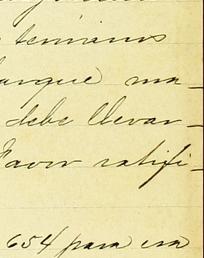 teniamos
arque ma-
debe llevar-
Favor ratifi-
654 para esa